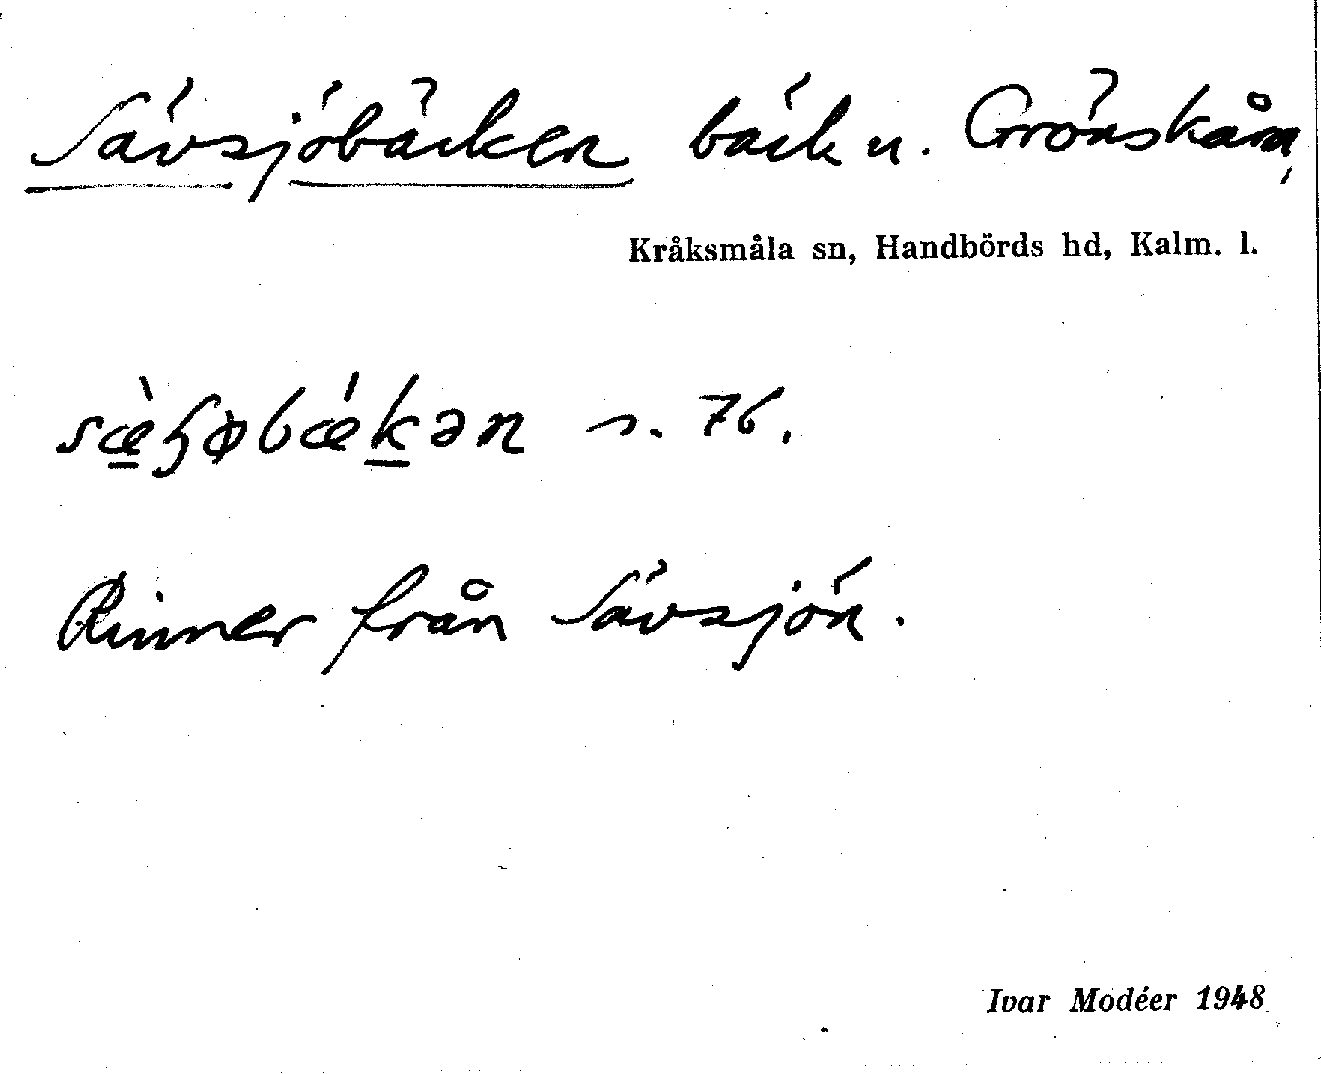 Sävsjöbäcken bäck u. Grönskåra,
Kråksmåla sn, Handbörds hd, Kalm. l.
s. 76.
Rinner från Sävsjön.
Ivar Modéer 1948